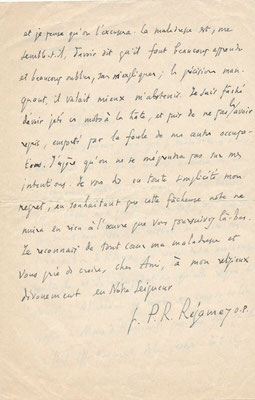 et je pense qu'on l'excusera. La maladresse est, me
semble-t-il, d'avoir dit qu'il faut beaucoup apprendre
et beaucoup oublier, sans m'expliquer ; la précision man-
quant, il valait mieux m'abstenir. Je suis fâché
d'avoir jeté ce mot à la hâte, et puis de ne pas l'avoir
repris, emporté par la foule de mes autres occupa-
tions. J'espère qu'on ne se méprendra pas sur mes
intentions. Je vous dis en toute simplicité mon
regret, en souhaitant que cette fâcheuse note ne
nuira en rien à l'œuvre que vous poursuivez là-bas.
Je reconnais de tout cœur ma maladresse et
vous prie de croire, cher Ami, à mon religieux
dévouement en Notre Seigneur
f. P. R. Régamey o.p.